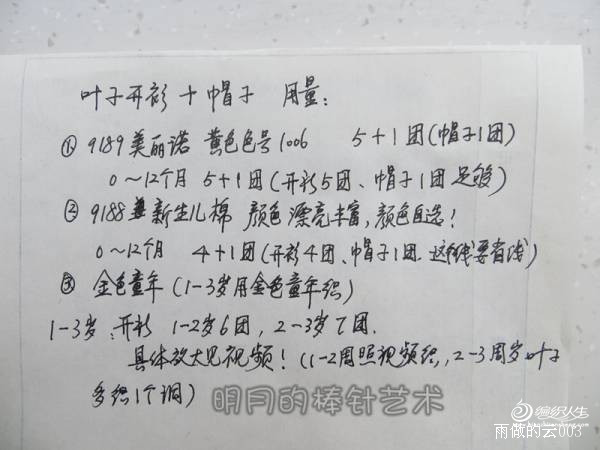 叶子开衫 + 帽子 用量:
① 9189美丽诺 黄色色号1006 5+1团(帽子1团)
0~12个月 5+1团(开衫5团、帽子1团足够)
② 9188 新生儿棉 颜色漂亮丰富,颜色自选!
0~12个月 4+1团(开衫4团、帽子1团.这个线要有线)
③ 金色童年(1-3岁用金色童年织)
1-3岁:开衫 1-2岁6团,2-3岁7团.
具体放大见视频!(1-2周照视频织,2-3周岁叶子
多织1个洞)
明月的棒针艺术
编织人生
雨做的云003